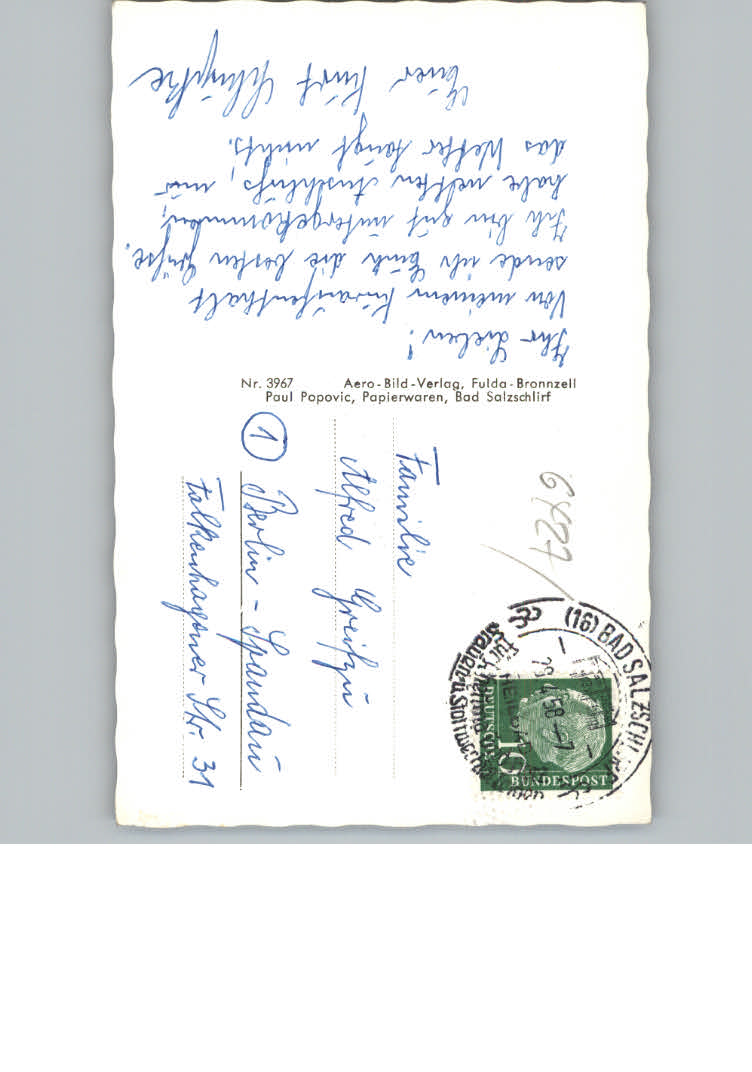 Ihr Lieben!
Von meinem Kuraufenthalt
sende ich Euch die besten Grüße.
Ich bin gut untergekommen,
habe netten Anschluß, nur
das Wetter taugt nichts.
Euer Kurt
Nr. 3967 Aero-Bild-Verlag, Fulda-Bronnzell
Paul Popovic, Papierwaren, Bad Salzschlirf
Familie
Alfred Greifzu
① Berlin - Spandau
Falkenhagener Str. 31
6427
(16) BAD SALZSCHLIRF
58-7
10
BUNDESPOST